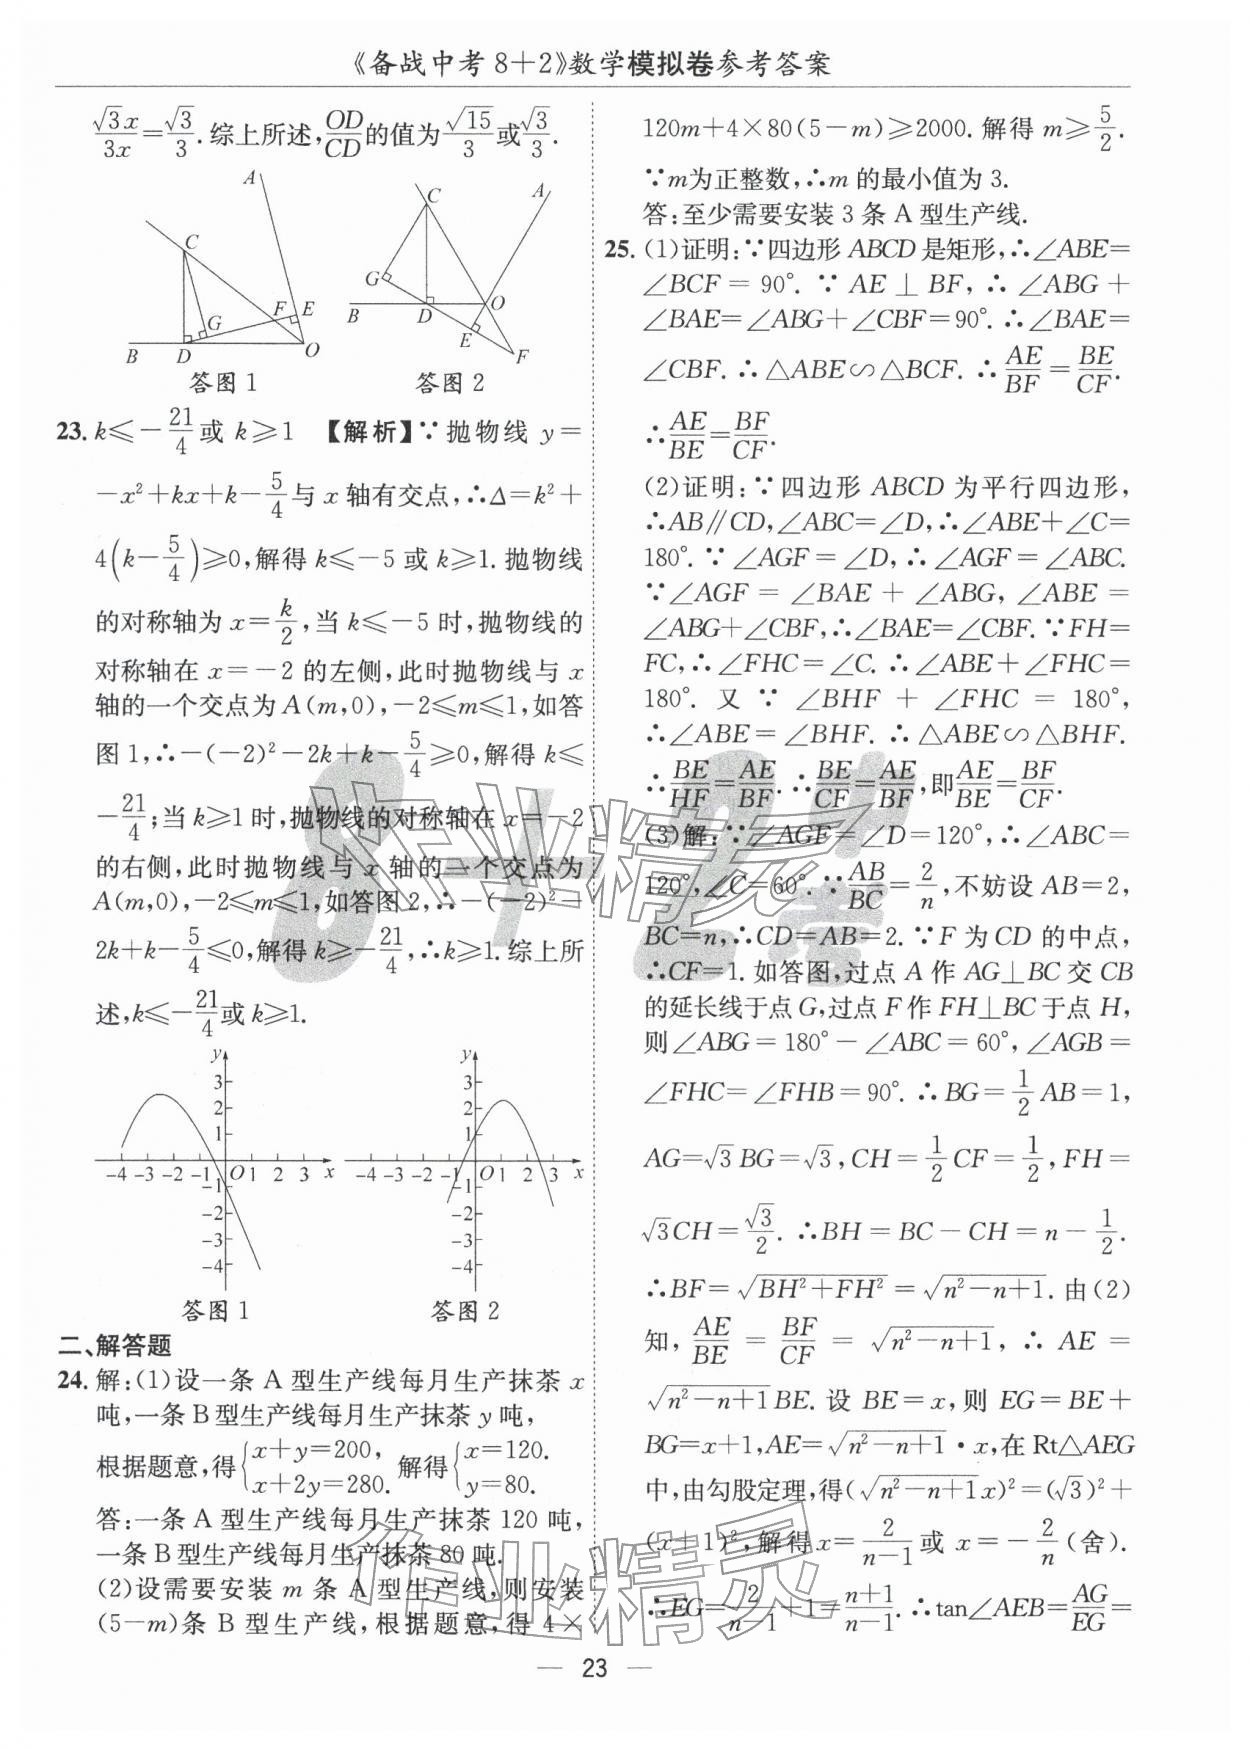 《备战中考8+2》数学模拟卷参考答案
√3x/3x=√3/3.综上所述,OD/CD的值为√15/3或√3/3.
A
C
G
F
E
B
D
O
答图1
C
A
G
B
D
O
E
F
答图2
23.k≤-21/4或k≥1 【解析】∵抛物线y=
-x²+kx+k-5/4与x轴有交点,∴Δ=k²+
4(k-5/4)≥0,解得k≤-5或k≥1.抛物线
的对称轴为x=k/2,当k≤-5时,抛物线的
对称轴在x=-2的左侧,此时抛物线与x
轴的一个交点为A(m,0),-2≤m≤1,如答
图1,∴-(-2)²-2k+k-5/4≥0,解得k≤
-21/4;当k≥1时,抛物线的对称轴在x=-2
的右侧,此时抛物线与x轴的一个交点为
A(m,0),-2≤m≤1,如答图2,∴-(-2)²-
2k+k-5/4≤0,解得k≥-21/4,∴k≥1.综上所
述,k≤-21/4或k≥1.
y
3
2
1
-4 -3 -2 -1 O 1 2 3 x
-1
-2
-3
-4
答图1
y
3
2
1
-4 -3 -2 -1 O 1 2 3 x
-1
-2
-3
-4
答图2
二、解答题
24.解:(1)设一条A型生产线每月生产抹茶x
吨,一条B型生产线每月生产抹茶y吨,
根据题意,得{x+y=200, x+2y=280. 解得{x=120. y=80.
答:一条A型生产线每月生产抹茶120吨,
一条B型生产线每月生产抹茶80吨.
(2)设需要安装m条A型生产线,则安装
(5-m)条B型生产线,根据题意,得4×
120m+4×80(5-m)≥2000.解得m≥5/2.
∵m为正整数,∴m的最小值为3.
答:至少需要安装3条A型生产线.
25.(1)证明:∵四边形ABCD是矩形,∴∠ABE=
∠BCF=90°.∵AE⊥BF,∴∠ABG+
∠BAE=∠ABG+∠CBF=90°.∴∠BAE=
∠CBF.∴△ABE∽△BCF.∴AE/BF=BE/CF.
∴AE/BE=BF/CF.
(2)证明:∵四边形ABCD为平行四边形,
∴AB∥CD,∠ABC=∠D,∴∠ABE+∠C=
180°.∵∠AGF=∠D,∴∠AGF=∠ABC.
∵∠AGF=∠BAE+∠ABG,∠ABE=
∠ABG+∠CBF,∴∠BAE=∠CBF.∵FH=
FC,∴∠FHC=∠C.∴∠ABE+∠FHC=
180°.又∵∠BHF+∠FHC=180°,
∴∠ABE=∠BHF.∴△ABE∽△BHF.
∴BE/HF=AE/BF.∴BE/CF=AE/BF,即AE/BE=BF/CF.
(3)解:∵∠AGF=∠D=120°,∴∠ABC=
120°,∠C=60°.∵AB/BC=2/n,不妨设AB=2,
BC=n,∴CD=AB=2.∵F为CD的中点,
∴CF=1.如答图,过点A作AG⊥BC交CB
的延长线于点G,过点F作FH⊥BC于点H,
则∠ABG=180°-∠ABC=60°,∠AGB=
∠FHC=∠FHB=90°.∴BG=1/2AB=1,
AG=√3BG=√3,CH=1/2CF=1/2,FH=
√3CH=√3/2.∴BH=BC-CH=n-1/2.
∴BF=√(BH²+FH²)=√(n²-n+1).由(2)
知,AE/BE=BF/CF=√(n²-n+1),∴AE=
√(n²-n+1)BE.设BE=x,则EG=BE+
BG=x+1,AE=√(n²-n+1)·x,在Rt△AEG
中,由勾股定理,得(√(n²-n+1)x)²=(√3)²+
(x+1)²,解得x=2/(n-1)或x=-2/n(舍).
∴EG=2/(n-1)+1=(n+1)/(n-1).∴tan∠AEB=AG/EG=
— 23 —
8+2中考
作业精灵
作业精灵